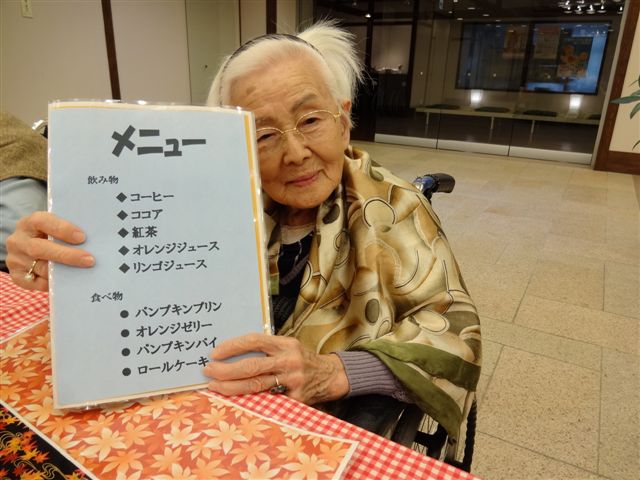 メニュー
飲み物
◆ コーヒー
◆ ココア
◆ 紅茶
◆ オレンジジュース
◆ リンゴジュース
食べ物
● パンプキンプリン
● オレンジゼリー
● パンプキンパイ
● ロールケーキ